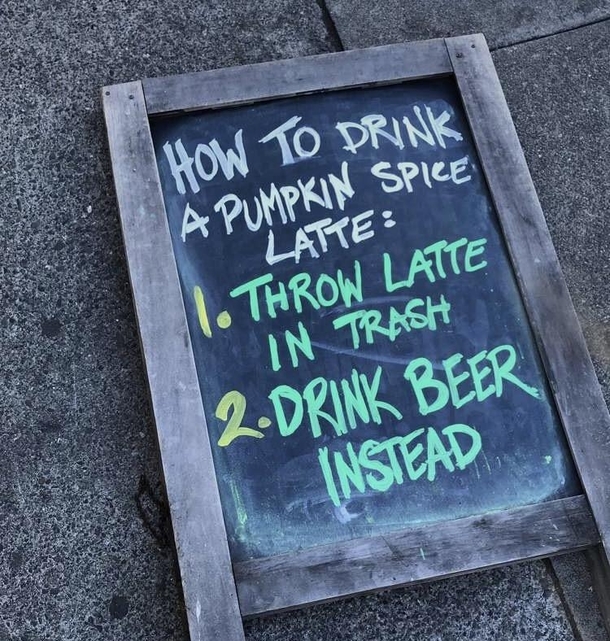 HOW TO DRINK
A PUMPKIN SPICE
LATTE:
1. THROW LATTE
IN TRASH
2. DRINK BEER
INSTEAD